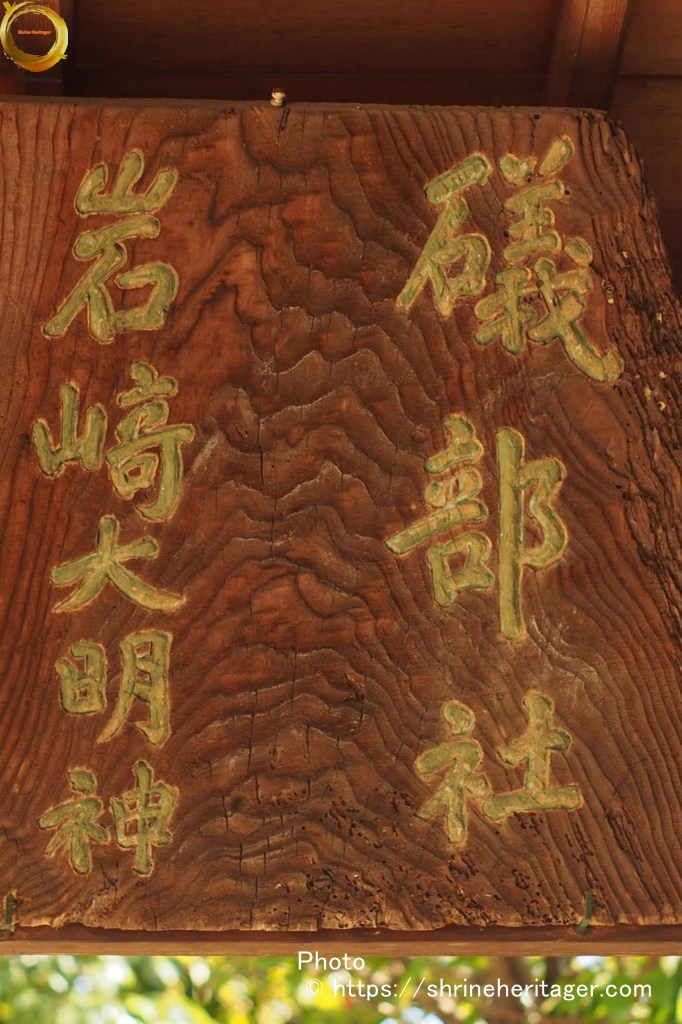 Shrine Heritager
礒部社
岩崎大明神
Photo
© https://shrineheritager.com